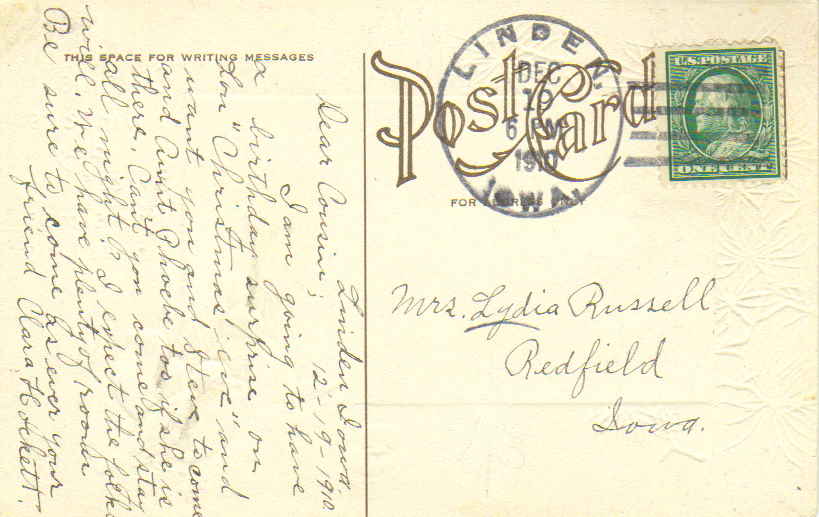 THIS SPACE FOR WRITING MESSAGES
Post Card
FOR ADDRESS ONLY
LINDEN,
DEC
19
6 PM
1910
IOWA.
U.S. POSTAGE
ONE CENT
Linden Iowa.
12-19-1910.
Dear Cousin;
I am going to have
a birthday surprise on
Lon "Christmas eve" and
want you and Steve to come
and Aunt Phoebe too if she is
there, Can't you come and stay
all night? I expect the folks
will. We have plenty of room
Be sure to come as ever your
friend Clara Hockett.
Mrs. Lydia Russell
Redfield
Iowa.